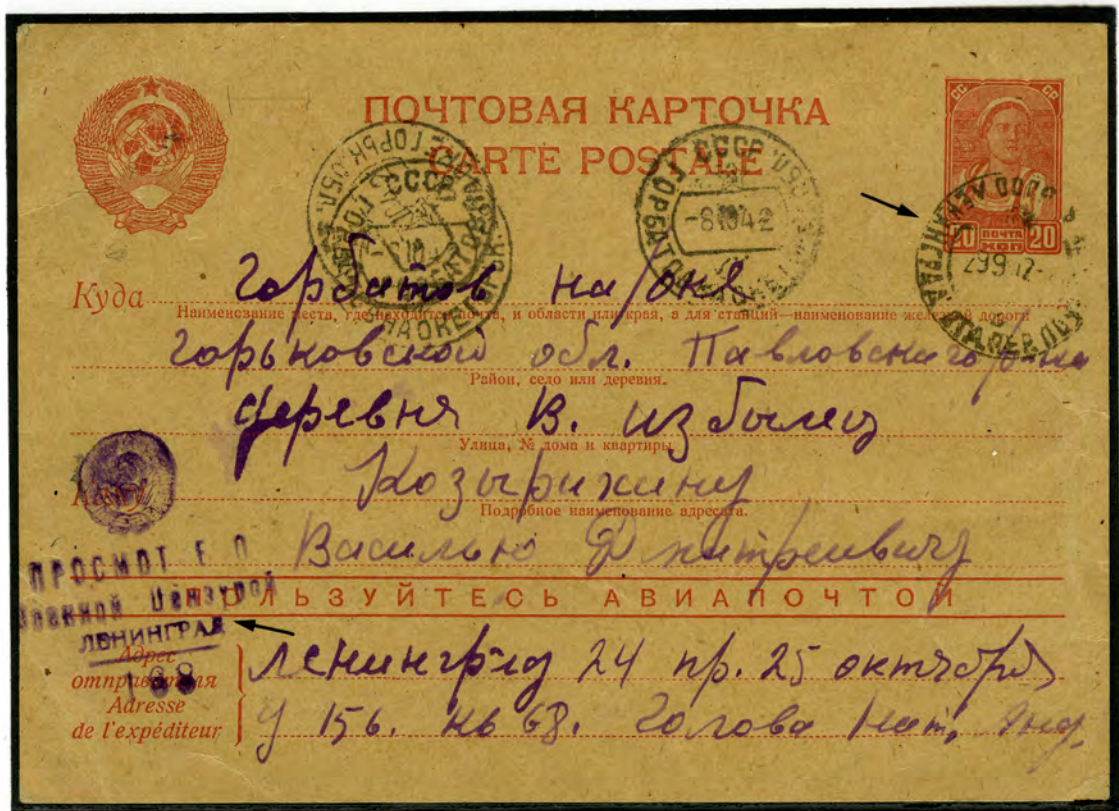 ПОЧТОВАЯ КАРТОЧКА
CARTE POSTALE
СССР
-8 10 42
СС СР
20 ПОЧТА КОП 20
29 9 42
Куда Горбатов на/оке
Наименование места, где находится почта, и области или края, а для станций—наименование железной дороги
Горьковской обл. Павловского р-на
Район, село или деревня.
деревня В. избылец
Улица, № дома и квартиры.
Кому
Подробное наименование адресата.
Василью Дмитриевичу
ПРОСМОТРЕНО
Военной Цензурой
ЛЕНИНГРАД
ПОЛЬЗУЙТЕСЬ АВИАПОЧТОЙ
Адрес отправителя
Adresse de l'expéditeur
Ленинград 24 пр. 25 октября
д 156. кв 68. Голова Нат.